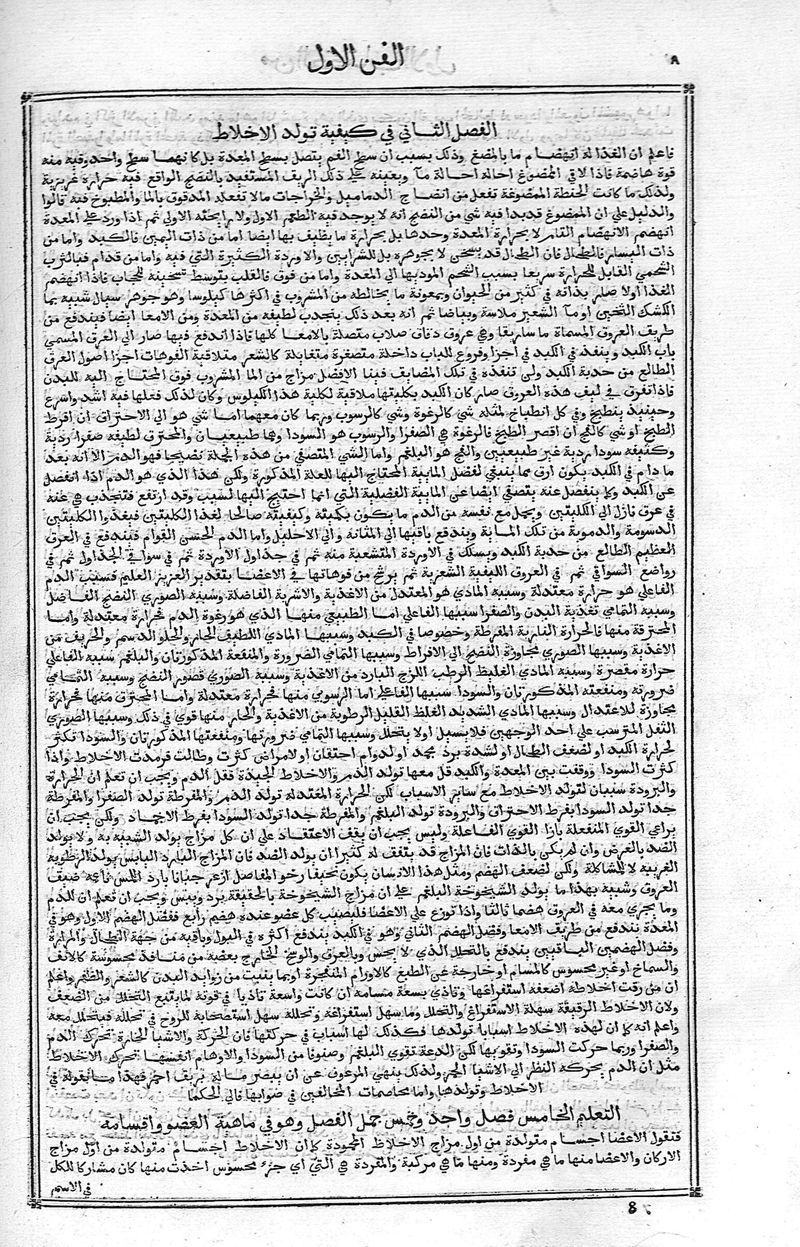 ٨
الفن الاول
الفصل الثاني في كيفية تولد الاخلاط
فاعلم ان الغذا له انهضام ما بالمضغ وذلك بسبب ان سطح الفم يتصل بسطح المعدة بل كانهما سطح واحد وفيه منه
قوة هاضمة فاذا لاقي الممضوغ احاله احالة ما ويعينه علي ذلك الريق المستفيد بالنضج الواقع فيه حرارة غريزية
ولذلك ما كانت الحنطة الممضوغة تفعل من انضاج الدماميل والخراجات مالا تفعله المدقوق بالما والمطبوخ فيه قالوا
والدليل علي ان الممضوغ قد بدا فيه شي من النضج انه لا يوجد فيه الطعم الاول ولا رايحته الاولي ثم اذا ورد علي المعدة
انهضم الانهضام التام لا بحرارة المعدة وحدها بل بحرارة ما يطيف بها ايضا اما من ذات اليمين فالكبد واما من
ذات اليسار فالطحال فان الطحال قد يسخن لا بجوهره بل بالشرايين والاوردة الكثيرة التي فيه واما من قدام فبالثرب
الشحمي القابل للحرارة سريعا بسبب الشحم المودبها الي المعدة واما من فوق فالقلب بتوسط تسخينه للحجاب فاذا انهضم
الغذا اولا صار بذاته في كثير من الحيوان وبمعونة ما يخالطه من المشروب في اكثرها كيلوسا وهو جوهر سيال شبيه بما
الكشك الثخين او ما الشعير ملاسة وبياضا ثم انه بعد ذلك ينجذب لطيفه من المعدة ومن الامعا ايضا فيندفع من
طريق العروق المسماة ما ساريقا وهي عروق دقاق صلاب متصلة بالامعا كلها فاذا اندفع فيها صار الي العرق المسمي
باب الكبد وينفذ في الكبد في اجزا وفروع للباب داخلة متصغرة متضايلة كالشعر متلاقية الفوهات اجزا اصول العرق
الطالع من حدبة الكبد ولن تنفذه في تلك المضايق فينا الافضل مزاج من الما المشروب فوق المحتاج اليه للبدن
فاذا تفرق في ليف هذه العروق صار كان الكبد بكليتها ملاقية لكلية هذا الكيلوس وكان لذلك فعلها فيه اشد واسرع
وحينيذ ينطبخ وفي كل انطباخ مثله شي كالرغوة وشي كالرسوب وربما كان معهما اما شي هو الي الاحتراق ان افرط
الطبخ او شي كالفج ان اقصر الطبخ فالرغوة هي الصفرا والرسوب هو السودا وهما طبيعيان والمحترق لطيفه صفرا ردية
وكثيفه سودا ردية غير طبيعيين والفج هو البلغم واما الشي المتصفي من هذه الجملة نضيجا فهو الدم الا انه بعد
ما دام في الكبد يكون ارق مما ينبغي لفضل المايية المحتاج اليها للعلة المذكورة ولكن هذا الذي هو الدم اذا انفصل
عن الكبد وكما ينفصل عنه يتصفي ايضا عن المايية الفضلية التي انما احتيج اليها لسبب وقد ارتفع فتنجذب هي عنه
في عرق نازل الي الكليتين ويحمل مع نفسه من الدم ما يكون بكميته وكيفيته صالحا لغذا الكليتين فيغذوا الكليتين
الدسومة والدموية من تلك المايية ويندفع باقيها الي المثانة والي الاحليل واما الدم الحسن القوام فيندفع في العرق
العظيم الطالع من حدبة الكبد ويسلك في الاوردة المتشعبة منه ثم في جداول الاوردة ثم في سواقي الجداول ثم في
رواضع السواقي ثم في العروق الليفية الشعرية ثم يرشح من فوهاتها في الاعضا بتقدير العزيز العليم فسبب الدم
الفاعلي هو حرارة معتدلة وسببه المادي هو المعتدل من الاغذية والاشربة الفاضلة وسببه الصوري النضج الفاضل
وسببه التمامي تغذية البدن والصفرا سببها الفاعلي اما الطبيعي منها الذي هو رغوة الدم فحرارة معتدلة واما
المحترقة منها فالحرارة النارية المفرطة وخصوصا في الكبد وسببها المادي اللطيف الحار والحلو الدسم والحريف من
الاغذية وسببها الصوري مجاوزة النضج الي الافراط وسببها التمامي الضرورة والمنفعة المذكورتان والبلغم سببه الفاعلي
حرارة مقصرة وسببه المادي الغليظ الرطب اللزج البارد من الاغذية وسببه الصوري قصور النضج وسببه التمامي
ضرورته ومنفعته المذكورتان والسودا سببها الفاعلي اما الرسوبي منها فحرارة معتدلة واما المحترق منها فحرارة
مجاوزة للاعتدال وسببها المادي الشديد الغلظ القليل الرطوبة من الاغذية والحار منها قوي في ذلك وسببها الصوري
الثفل المترسب علي احد الوجهين فلا يسيل اولا يتحلل وسببها التمامي ضرورتها ومنفعتها المذكورتان والسودا تكثر
لحرارة الكبد او لضعف الطحال او لشدة برد مجمد او لدوام احتقان او لامراض كثرت وطالت فرمدت الاخلاط واذا
كثرت السودا ووقفت بين المعدة والكبد قل معها تولد الدم والاخلاط الجيدة فقل الدم ويجب ان تعلم ان الحرارة
والبرودة سببان لتولد الاخلاط مع ساير الاسباب لكن الحرارة المعتدلة تولد الدم والمفرطة تولد الصفرا والمفرطة
جدا تولد السودا بفرط الاحتراق والبرودة تولد البلغم والمفرطة جدا تولد السودا بفرط الاجماد ولكن يجب ان
يراعي القوي المنفعلة بازا القوي الفاعلة وليس يجب ان يقف الاعتقاد علي ان كل مزاج يولد الشبيه به ولا يولد
الضد بالعرض وان لم يكن بالذات فان المزاج قد يتفق له كثيرا ان يولد الضد فان المزاج البارد اليابس يولد الرطوبة
الغريبة لا للمشاكلة ولكن لضعف الهضم ومثل هذا الانسان يكون نحيفا رخو المفاصل ازعر جبانا بارد اللمس ناعمه ضيق
العروق وشبيه بهذا ما تولد الشيخوخة البلغم علي ان مزاج الشيخوخة بالحقيقة برد ويبس ويجب ان تعلم ان للدم
وما يجري معه في العروق هضما ثالثا واذا توزع علي الاعضا فليصيب كل عضو عنده هضم رابع ففضل الهضم الاول وهو في
المعدة يندفع من طريق الامعا وفضل الهضم الثاني وهو في الكبد يندفع اكثره في البول وباقيه من جهة الطحال والمرارة
وفضل الهضمين الباقيين يندفع بالتحلل الذي لا يحس وبالعرق والوسخ الخارج بعضه من منافذ محسوسة كالانف
والسماخ او غير محسوس كالمسام او خارجة عن الطبع كالاورام المنفجرة او بما ينبت من زوايد البدن كالشعر والظفر واعلم
ان من رقت اخلاطه اضعفه استفراغها وتاذي بسعة مسامه ان كانت واسعة تاذيا في قوته لما يتبع التحلل من الضعف
ولان الاخلاط الرقيقة سهلة الاستفراغ والتحلل وما سهل استفراغه وتحلله سهل استصحابه للروح في تحلله فيتحلل معه
واعلم انه كما ان لهذه الاخلاط اسبابا تولدها فكذلك لها اسباب في حركتها فان الحركة والاشيا الحارة تحرك الدم
والصفرا وربما حركت السودا وتقويها لكن الدعة تقوي البلغم وصنوفا من السودا والاوهام انفسها تحرك الاخلاط
مثل ان الدم يحركه النظر الي الاشيا الحمر ولذلك ينهي المرعوف عن ان يبصر ما له بريق احمر فهذا ما نقوله في
الاخلاط وتولدها واما مخاصمات المخالفين في صوابها فالي الحكما
التعليم الخامس فصل واحد وخمس جمل الفصل وهو في ماهية العضو واقسامه
فنقول الاعضا اجسام متولدة من اول مزاج الاخلاط المحمودة كما ان الاخلاط اجسام متولدة من اول مزاج
الاركان والاعضا منها ما هي مفردة ومنها ما هي مركبة والمفردة هي التي اي جزء محسوس اخذت منها كان مشاركا للكل
في الاسم
8